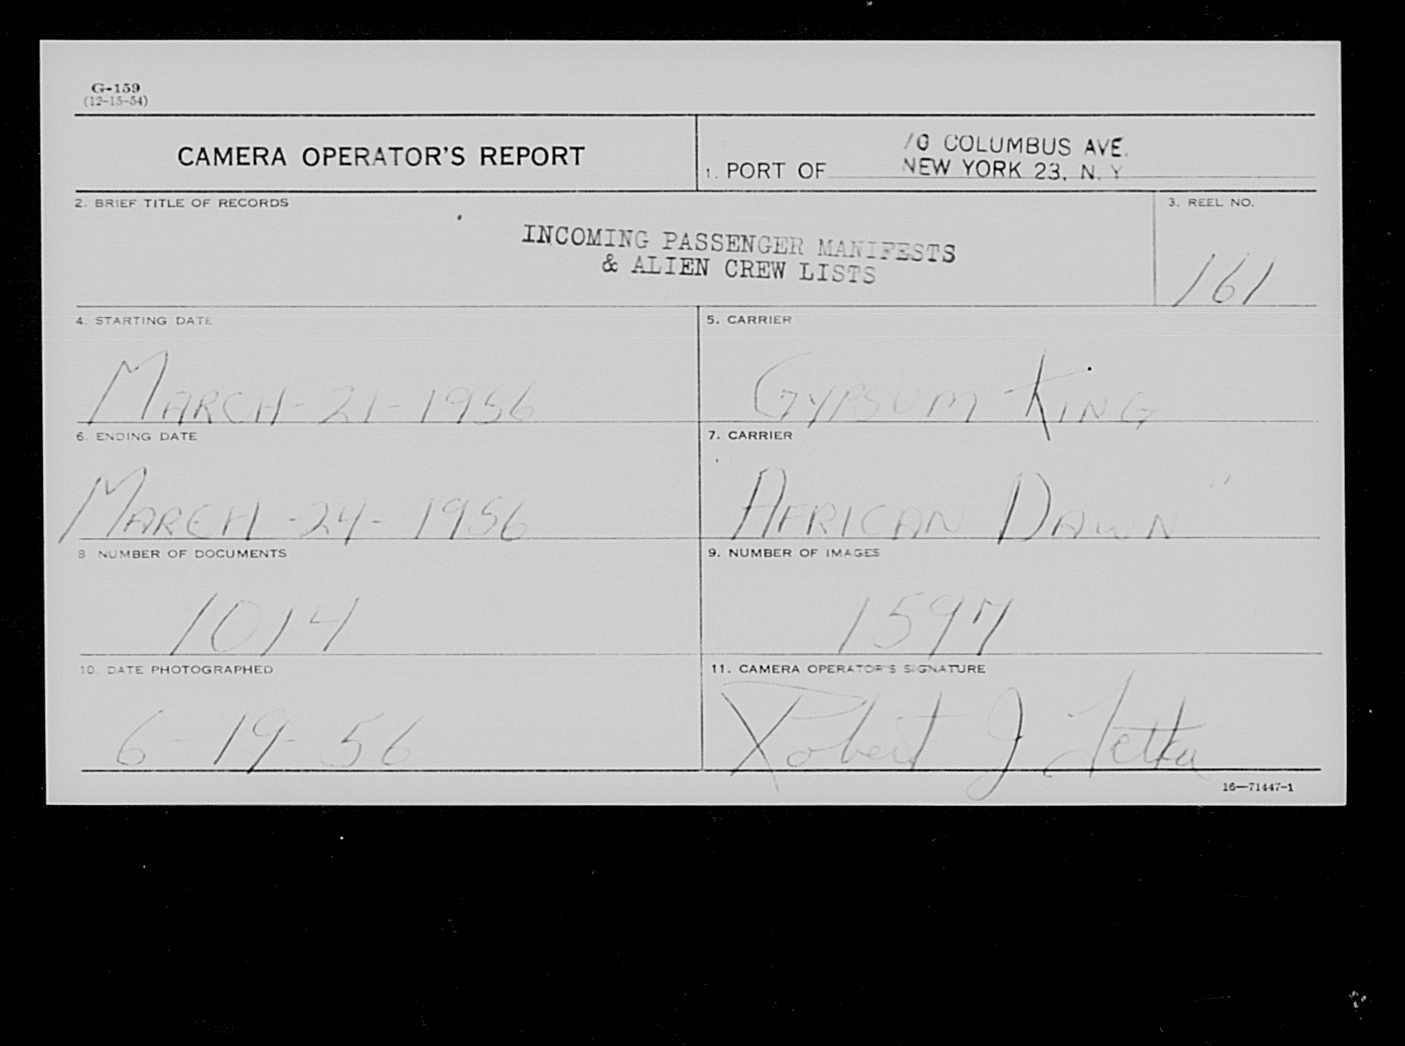 G-159
(12-15-54)
CAMERA OPERATOR'S REPORT
1. PORT OF
70 COLUMBUS AVE.
NEW YORK 23, N. Y.
2. BRIEF TITLE OF RECORDS
INCOMING PASSENGER MANIFESTS
& ALIEN CREW LISTS
3. REEL NO.
161
4. STARTING DATE
MARCH-21-1956
5. CARRIER
GYPSUM KING
6. ENDING DATE
MARCH-24-1956
7. CARRIER
AFRICAN DAWN "
8 NUMBER OF DOCUMENTS
1014
9. NUMBER OF IMAGES
1597
10. DATE PHOTOGRAPHED
6-19-56
11. CAMERA OPERATOR'S SIGNATURE
Robert J
16—71447-1